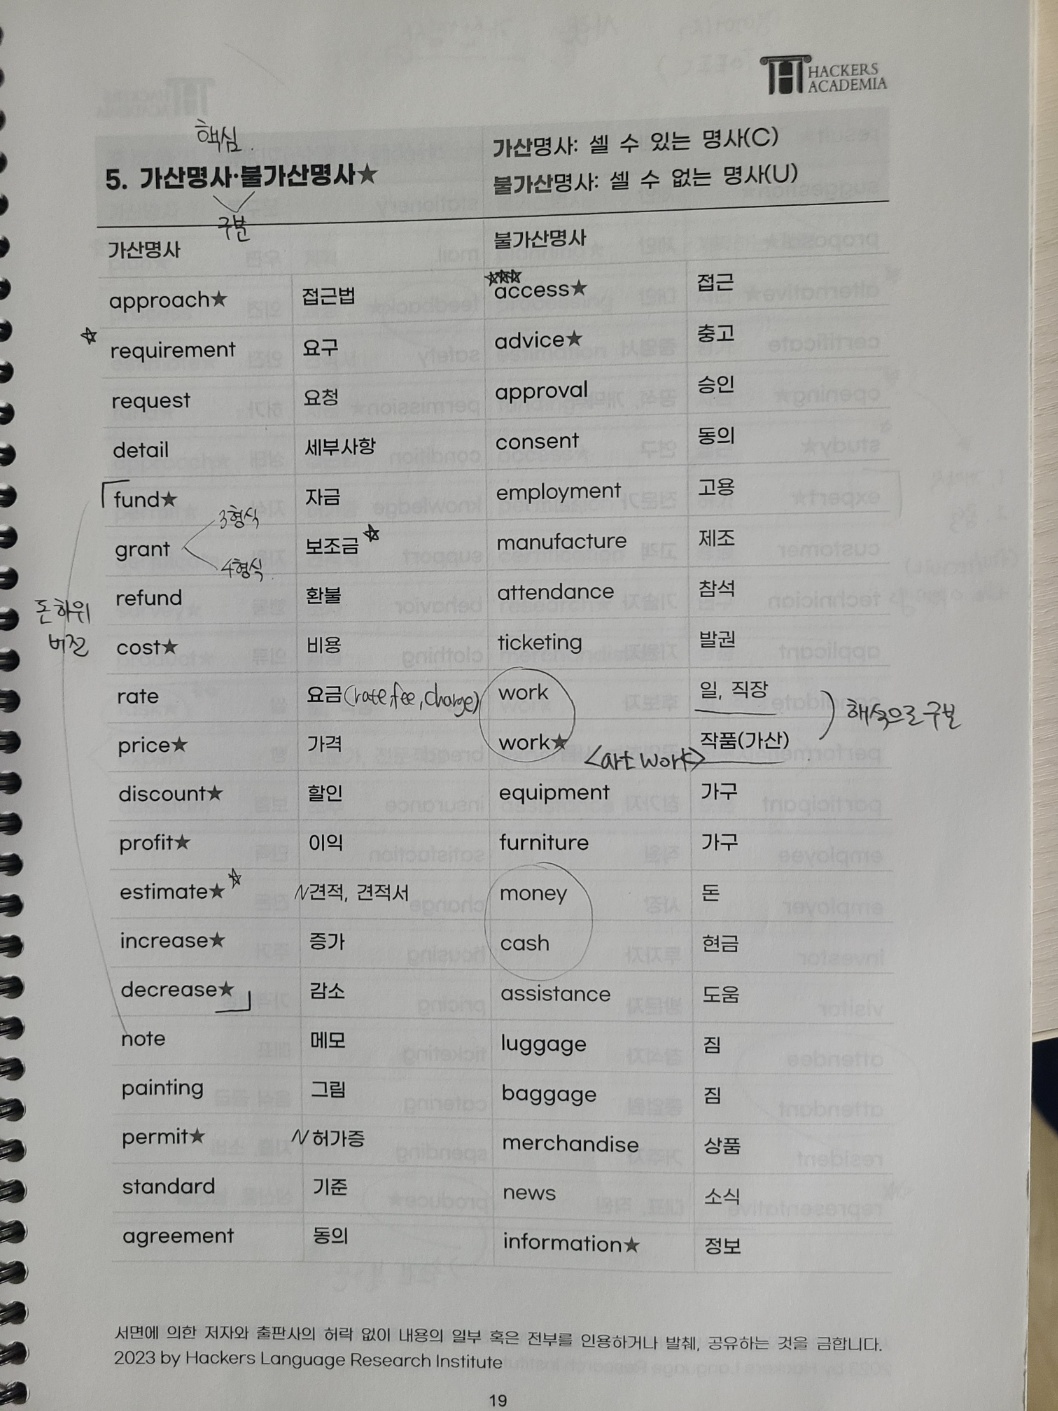 HACKERS
ACADEMIA
핵심.
5. 가산명사·불가산명사★
구분
가산명사: 셀 수 있는 명사(C)
불가산명사: 셀 수 없는 명사(U)
가산명사 불가산명사
approach★ 접근법 access★ 접근
requirement 요구 advice★ 충고
request 요청 approval 승인
detail 세부사항 consent 동의
fund★ 자금 employment 고용
3형식
grant 보조금 manufacture 제조
4형식
refund 환불 attendance 참석
돈 하위
버전
cost★ 비용 ticketing 발권
rate 요금(rate, fee, charge) work 일, 직장
해석으로 구분
price★ 가격 work★ <art work> 작품(가산)
discount★ 할인 equipment 가구
profit★ 이익 furniture 가구
estimate★ N견적, 견적서 money 돈
increase★ 증가 cash 현금
decrease★ 감소 assistance 도움
note 메모 luggage 짐
painting 그림 baggage 짐
permit★ N허가증 merchandise 상품
standard 기준 news 소식
agreement 동의 information★ 정보
서면에 의한 저자와 출판사의 허락 없이 내용의 일부 혹은 전부를 인용하거나 발췌, 공유하는 것을 금합니다.
2023 by Hackers Language Research Institute
19